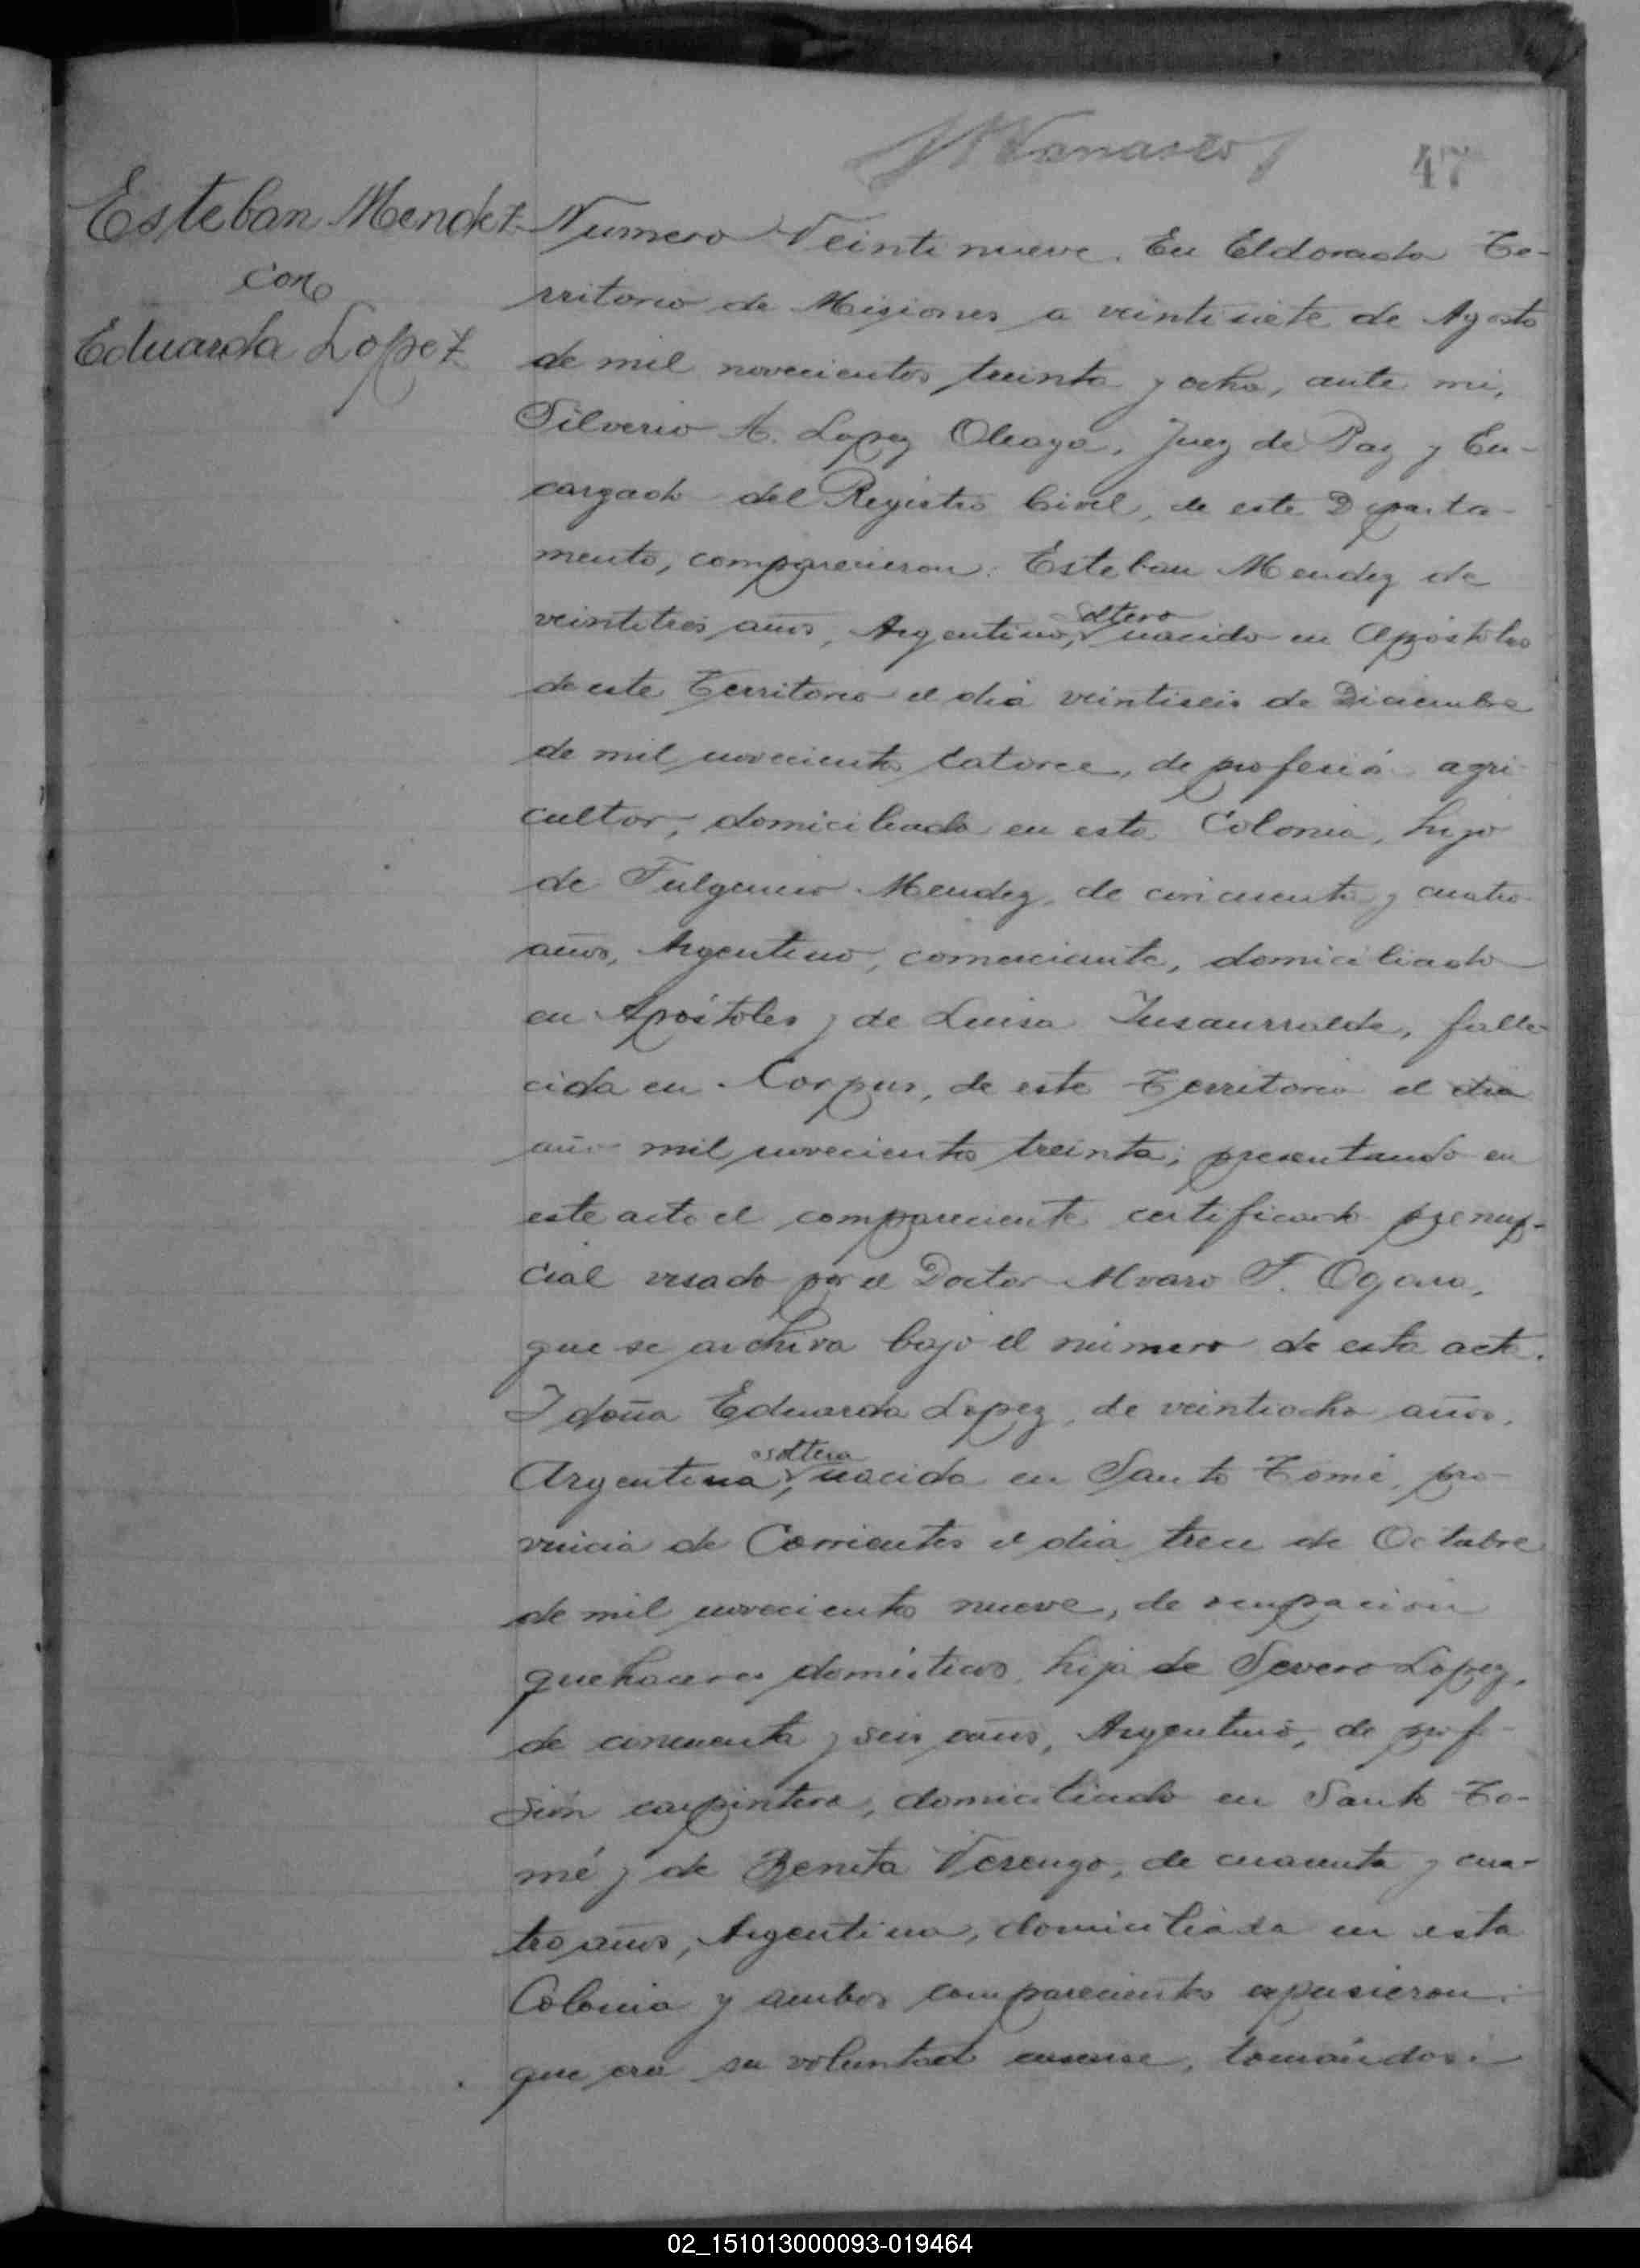 47
Esteban Mendez
con
Eduarda Lopez
Numero Veintinueve. En Eldorado Te-
rritorio de Misiones a veintisiete de Agosto
de mil novecientos treinta y ocho, ante mi,
Silverio A. Lopez Oleaga, Juez de Paz y En-
cargado del Registro Civil, de este Departa-
mento, comparecieron: Esteban Mendez de
soltero
veintitres años, Argentino, nacido en Apóstoles
de este Territorio el dia veintiseis de Diciembre
de mil novecientos catorce, de profesión agri-
cultor, domiciliado en esta Colonia, hijo
de Fulgencio Mendez, de cincuenta y cuatro
años, Argentino, comerciante, domiciliado
en Apóstoles y de Luisa Insaurralde, falle-
cida en Corpus, de este Territorio el dia
año mil novecientos treinta; presentando en
este acto el compareciente certificado prenup-
cial visado por el Doctor Alvaro F. Ogara,
que se archiva bajo el número de esta acta.
Y doña Eduarda Lopez, de veintiocho años,
soltera
Argentina, nacida en Santo Tomé, pro-
vincia de Corrientes el dia trece de Octubre
de mil novecientos nueve, de ocupación
quehaceres domésticos, hija de Severo Lopez,
de cincuenta y seis años, Argentino, de profe-
sión carpintero, domiciliado en Santo To-
mé y de Benita Verengo, de cuarenta y cua-
tro años, Argentina, domiciliada en esta
Colonia y ambos comparecientes expusieron:
que era su voluntad casarse, tomándose
02_151013000093-019464